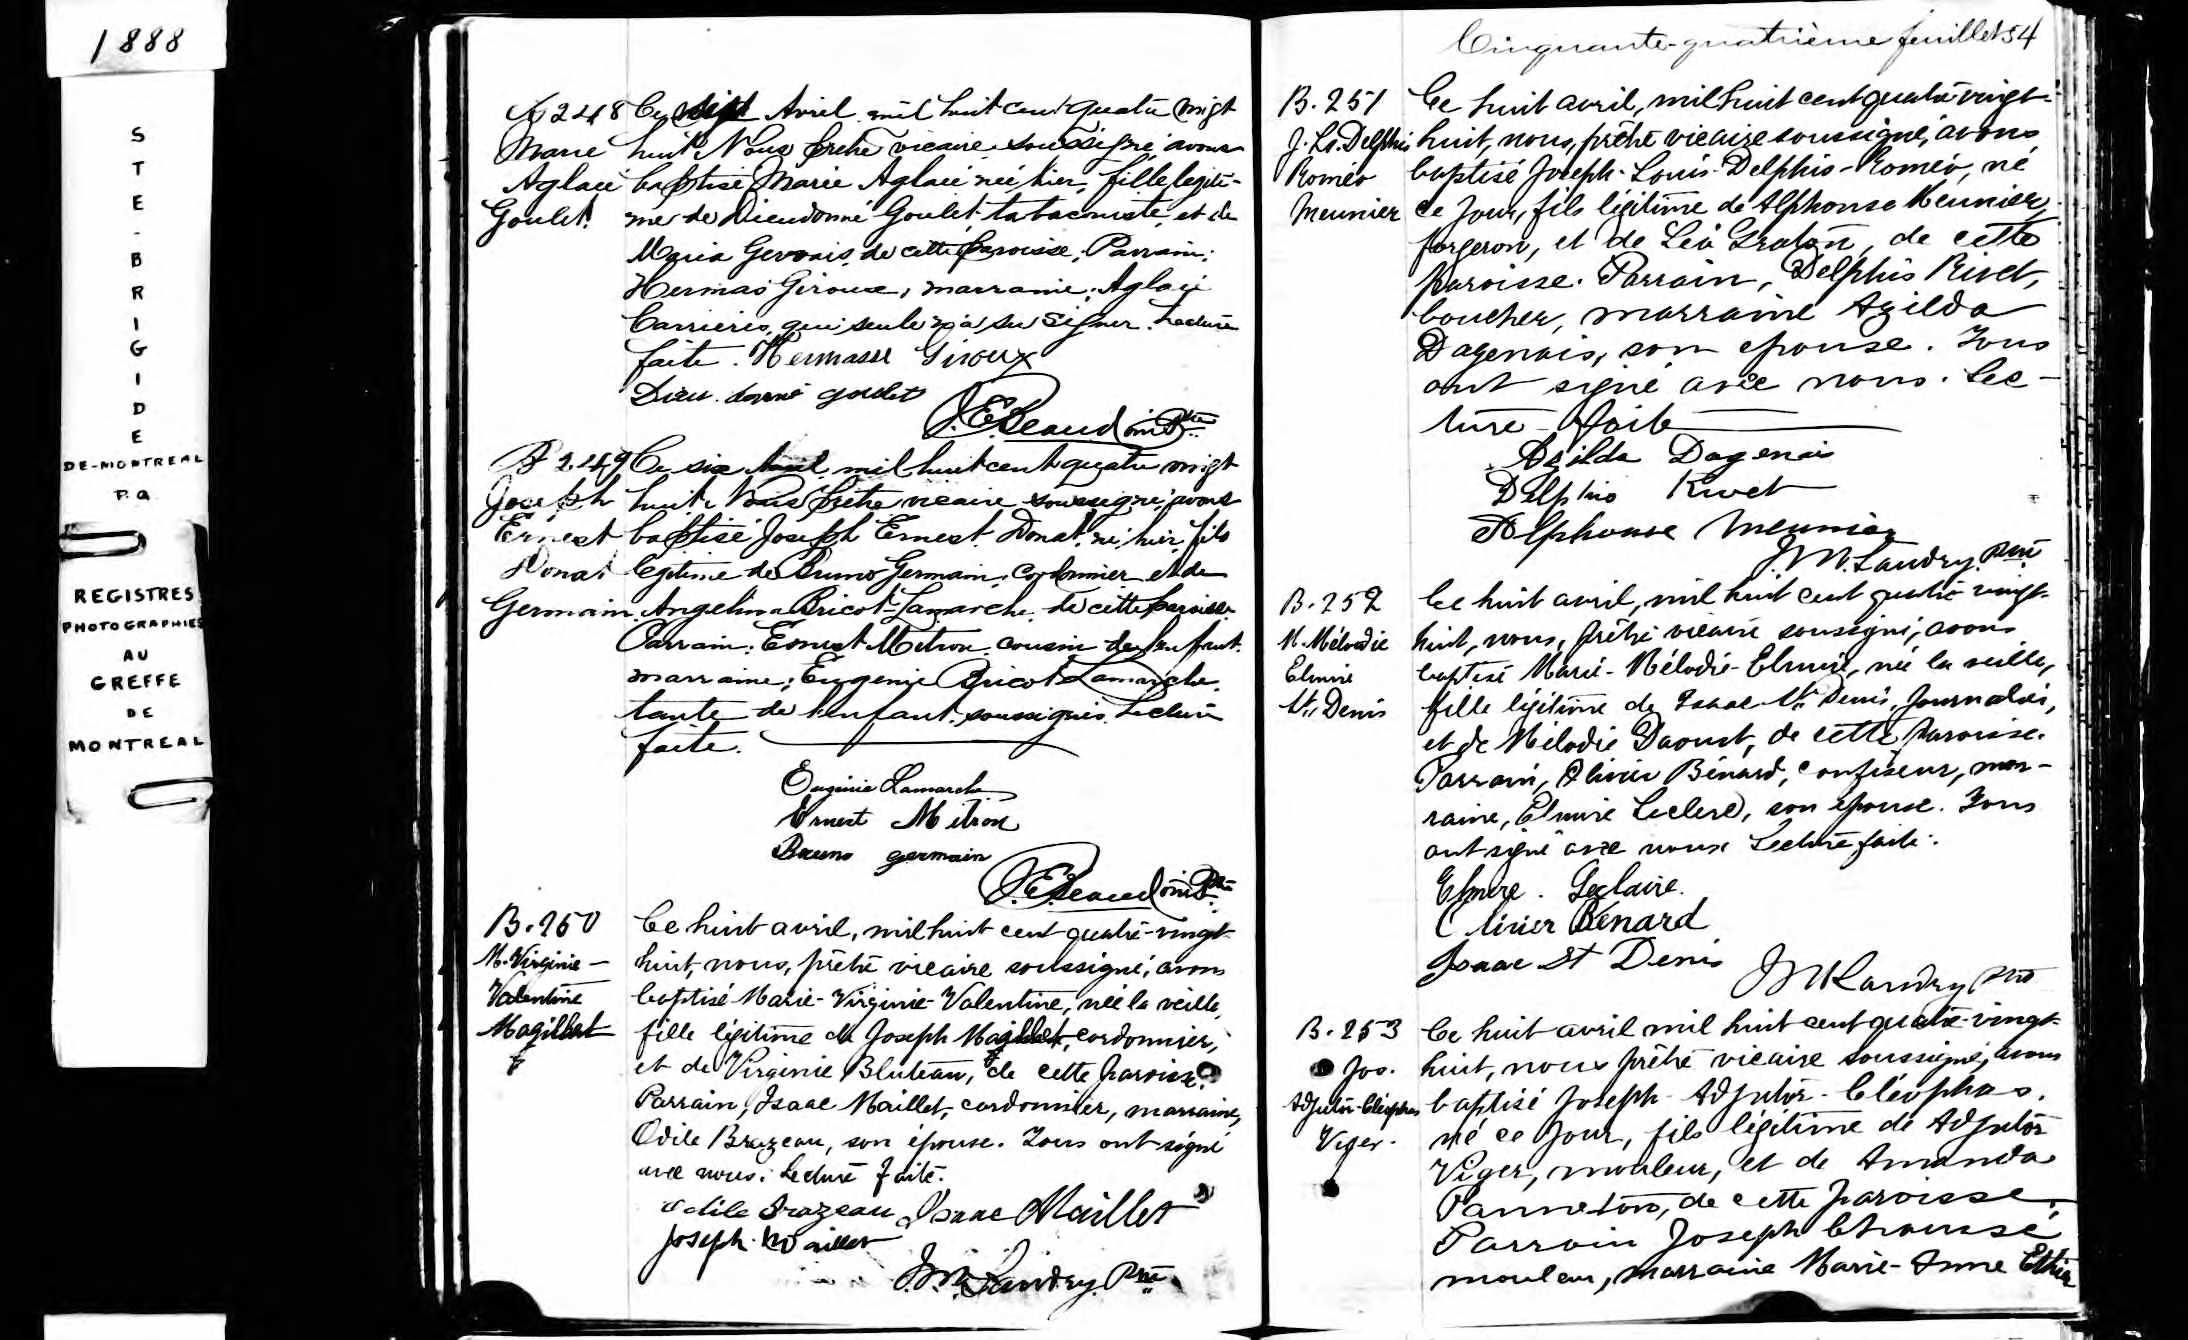 1888
STE-BRIGIDE
DE-MONTREAL
P.Q.
REGISTRES
PHOTOGRAPHIES
AU
GREFFE
DE
MONTREAL
B 248
Marie
Aglaée
Goulet
Ce sept Avril mil huit cent quatre vingt
huit Nous prêtre vicaire soussigné avons
baptisé Marie Aglaée née hier, fille légiti-
me de Dieudonné Goulet tabaconiste et de
Maria Gervais de cette paroisse, Parrain:
Hermas Giroux, marraine: Aglaée
Carrieres, qui seule n'a su signer. Lecture
faite. Hermass Giroux
Dieu donné goulet
J.E. Beaudoin Ptre
B 249
Joseph
Ernest
Donat
Germain
Ce six Avril mil huit cent quatre vingt
huit Nous prêtre vicaire soussigné, avons
baptisé Joseph Ernest Donat, né hier, fils
légitime de Bruno Germain, cordonnier et de
Angelina Bricot-Lamarche de cette paroisse
Parrain: Ernest Metron cousin de l'enfant.
marraine: Eugenie Bricot Lamarche
tante de l'enfant soussignés. Lecture
faite.
Eugénie Lamarche
Ernest Metron
Bruno germain
J.E. Beaudoin Ptre
B. 250
M. Virginie-
Valentine
Magillet
Ce huit avril, mil huit cent quatre-vingt
huit, nous, prêtre vicaire soussigné, avons
baptisé Marie-Virginie-Valentine, née la veille,
fille légitime de Joseph Magillet, cordonnier,
et de Virginie Bluteau, de cette paroisse.
Parrain, Isaac Maillet, cordonnier, marraine,
Odile Brazeau, son épouse. Tous ont signé
avec nous. Lecture faite.
Odile Brazeau Isaac Maillet
Joseph Maillet
J.M. Landry, Ptre
Cinquante-quatrième feuillet 54
B. 251
J. Ls. Delphis
Roméo
Meunier
Ce huit avril, mil huit cent quatre vingt-
huit, nous, prêtre vicaire soussigné, avons
baptisé Joseph-Louis-Delphis-Roméo, né
ce jour, fils légitime de Alphonse Meunier,
forgeron, et de Léa Graton, de cette
paroisse. Parrain, Delphis Rivet,
boucher, marraine Azilda
Dagenais, son epouse. Tous
ont signé avec nous. Lec-
ture faite
Azilda Dagenais
Delphis Rivet
Alphonse Meunier
J.M. Landry, Ptre
B. 252
M. Mélodie
Elmire
St. Denis
Ce huit avril, mil huit cent quatre vingt-
huit, nous, prêtre vicaire soussigné, avons
baptisé Marie-Mélodie-Elmire, née la veille,
fille légitime de Isaac St. Denis, journalier,
et de Mélodie Daoust, de cette paroisse.
Parrain, Olivier Bénard, confiseur, mar-
raine, Elmire Leclerc, son épouse. Tous
ont signé avec nous. Lecture faite.
Elmire Leclaire
Olivier Benard
Isaac St Denis
J M Landry Ptre
B. 253
Jos.
Adjutor-Cléophas
Viger.
Ce huit avril mil huit cent quatre-vingt-
huit, nous prêtre vicaire soussigné, avons
baptisé Joseph-Adjutor-Cléophas,
né ce jour, fils légitime de Adjutor
Viger, mouleur, et de Amanda
Panneton, de cette paroisse.
Parrain Joseph Chaussé
mouleur, marraine Marie-Anne Ethier